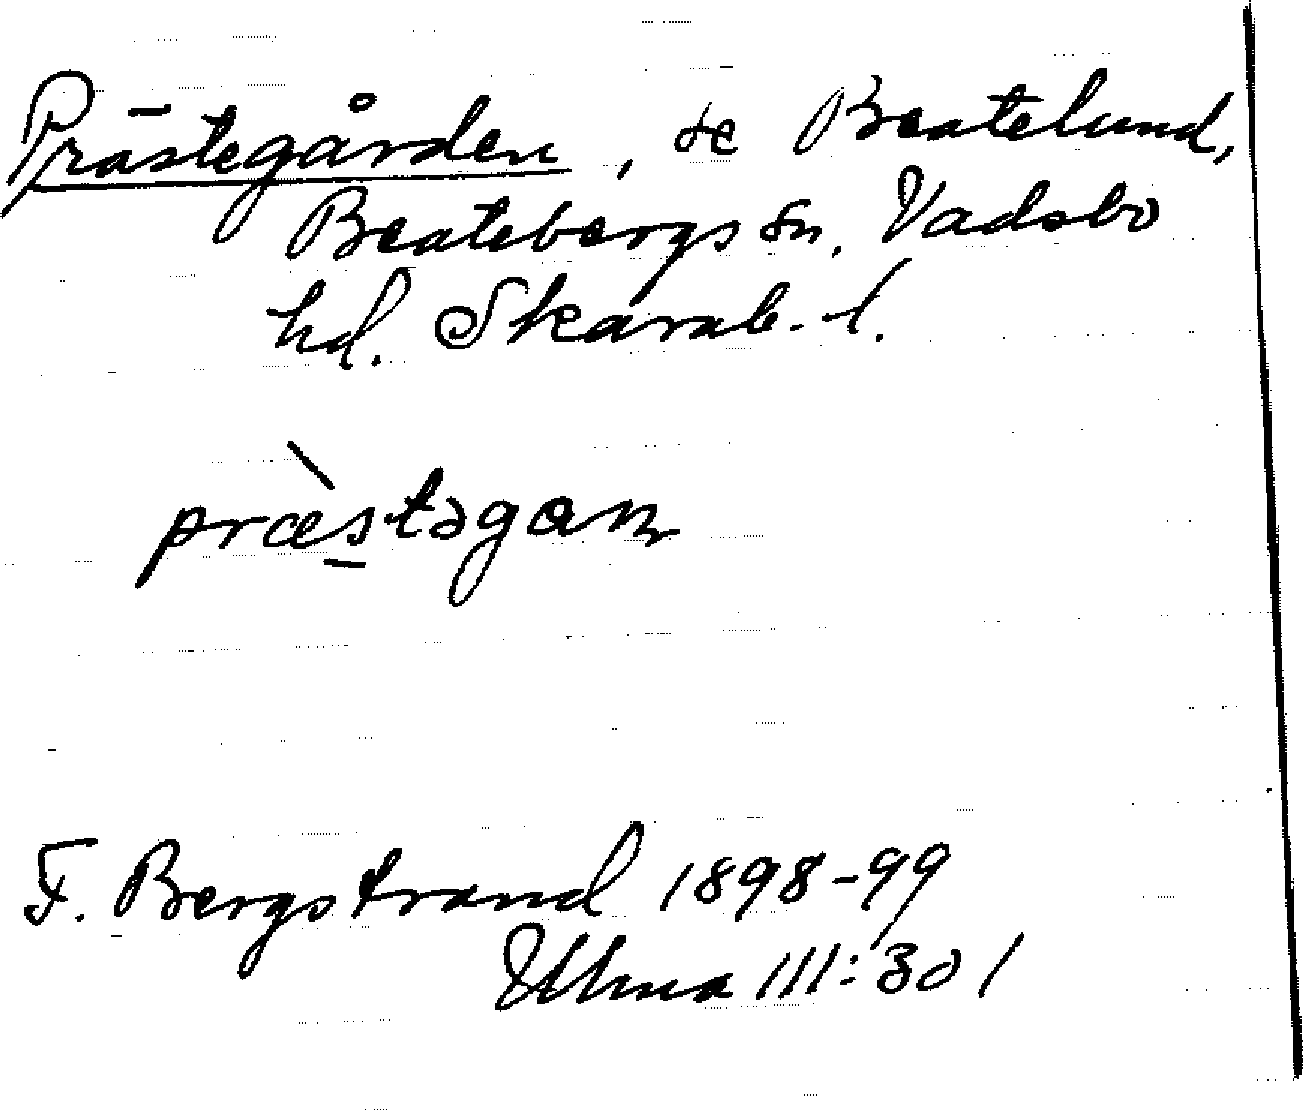 Prästegården, se Beatelund,
Beatebergs sn. Vadsbo
hd. Skarab. l.
præ̀stəgaɳ
F. Bergstrand 1898-99
Ulma 111:301